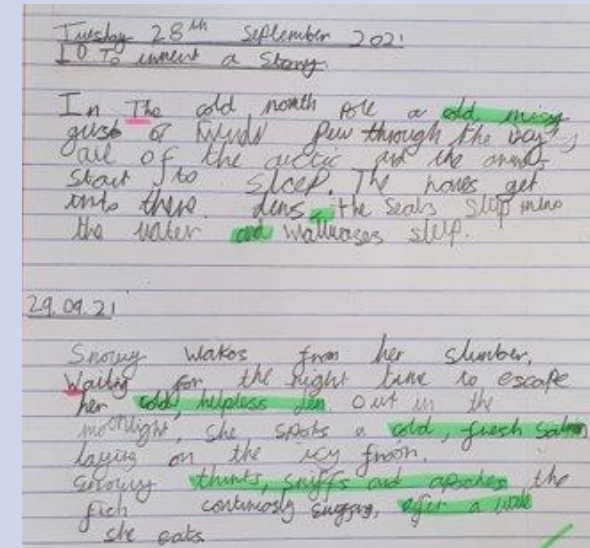 Tuesday 28th September 2021
LO To invent a Story.
In The cold north Pole a cold, misy
gust of winds flew through the
all of the arctic and the
start to sleep. The hares get
into there dens, the Seals slip into
the water and walluases sleep.
29.09.21
Snowy wakes from her slumber.
Waiting for the right time to escape
her cold, helpless den. Out in the
moonlight, she spots a cold, fresh
laying on the icy
Snowy thinks, sniffs and the
fish after a while
she eats